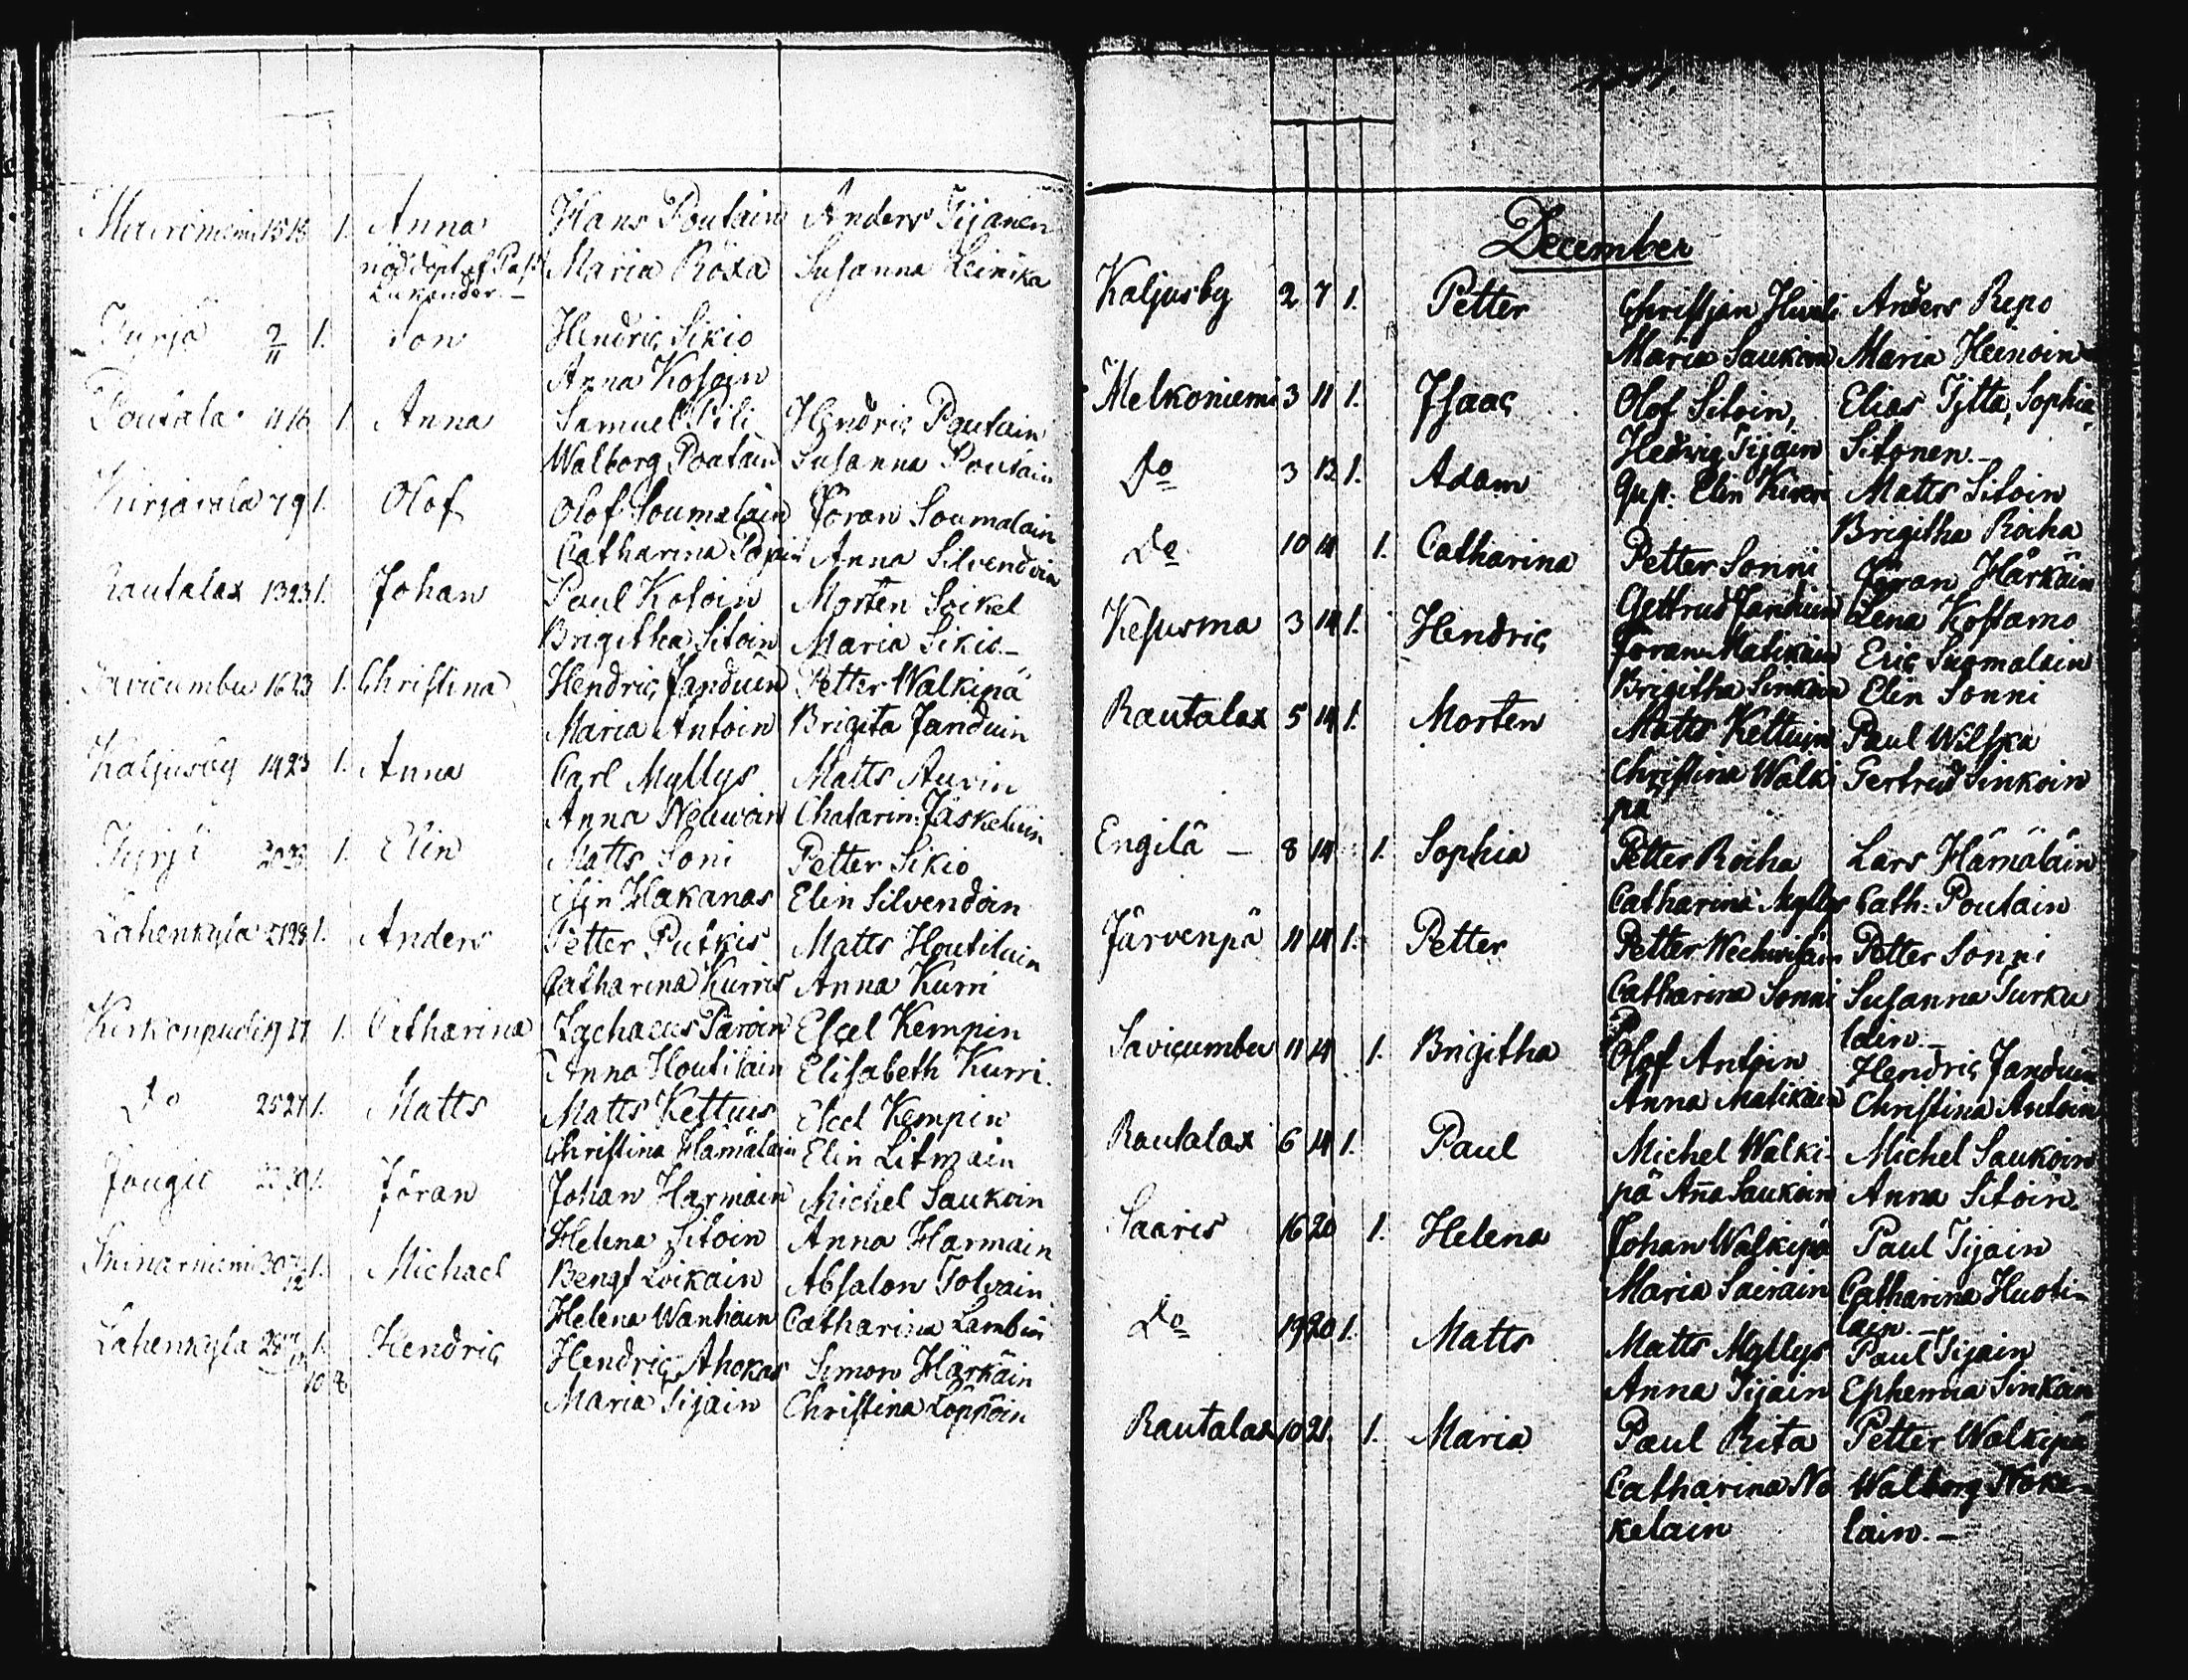 Anna Hans Poutain Anders Tijanen
nöddöpt af Past. Maria Röxa Susanna Leinika
Lukander.
son Hendric Sikio
2/11 1.
Anna Kosoin
Poutala 11 16 1. Anna Samuel Pili Hendric Poutain
Walborg Poutain Susanna Poutain
Kirjavala 7 9 1. Olof Olof Soumalain Jöran Soumalain
Catharina Anna Silvendoin
Rautalax 13 23 1. Johan Paul Kosoin Morten Soikel
Brigitha Sitoin Maria Sikio.–
Savicumbu 16 23 1. Christina Hendric Janduin Petter Walkipä
Maria Antoin Brigita Janduin
Kaljusby 14 23 1. Anna Carl Myllys Matts Aurin
Anna Neuwoin Chatarin: Jäskeluin
1. Elin Matts Soni Petter Sikio
Elin Hakanas Elin Silvendoin
Lahenkyla 1. Anders Petter Putkis Matts Houtilain
Catharina Kurris Anna Kurri
1. Catharina Zachaeus Paroin Escel Kempin
Anna Houtilain Elisabeth Kurri.
Do 25 27 1. Matts Matts Kettuis Escel Kempin
Christina Hämäläin Elin Litmain
1. Jöran Johan Harmain Michel Saukoin
Helena Sitoin Anna Harmain
1. Michael Bengt Loikain Absalon Tolvain
Helena Wanhain Catharina Lambin
Lahenkyla 1. Hendric Hendric Ahokas Simon Härkäin
10 8
Maria Tijain Christina Löppöin
December
Kaljusby 2 7 1. Petter Christjan Anders Repo
Maria Saukoin Maria Heinoin
Melkoniemi 3 11 1. Isaac Olof Sitoin, Elias Tjtta, Sophia
Hedvig Tijain Sitonen.–
Do 3 13 1. Adam Elin Matts Sitoin
Brigitha Roiha
Do 10 14 1. Catharina Petter Sonni Jöran Härkäin
Gettrud Janduin Lena Kostamo
Kesusma 3 14 1. Hendric Jöran Matikain Eric Suomalain
Brigitha Sinkoin Elin Sonni
Rautalax 5 14 1. Morten Matts Kettuin Paul Wilska
Christina Walki Gertrud Sinkoin
pä
Engilä – 8 14 1. Sophia Petter Roiha Lars Hämäläin
Catharina Myllys Cath: Poutain
Järvenpä 11 14 1. Petter Petter Wechviläin Petter Sonni
Catharina Sonni Susanna Turku
lain.–
Savicumbu 11 14 1. Brigitha Olof Antoin Hendric Janduin
Anna Matikain Christina Antoin
Rautalax 6 14 1. Paul Michel Walki- Michel Saukoin
pä Aña Saukoin Anna Sitoin.
Saaris 16 20 1. Helena Johan Walkipä Paul Tijain
Maria Sairain Catharina Huoti-
lain.–
Do 19 20 1. Matts Matts Myllys Paul Tijain
Anna Tijain Ephemia Sinkoin
Rautalax 10 21. 1. Maria Paul Rita Petter Walkipä
Catharina No Walborg Noke-
kelain lain.–